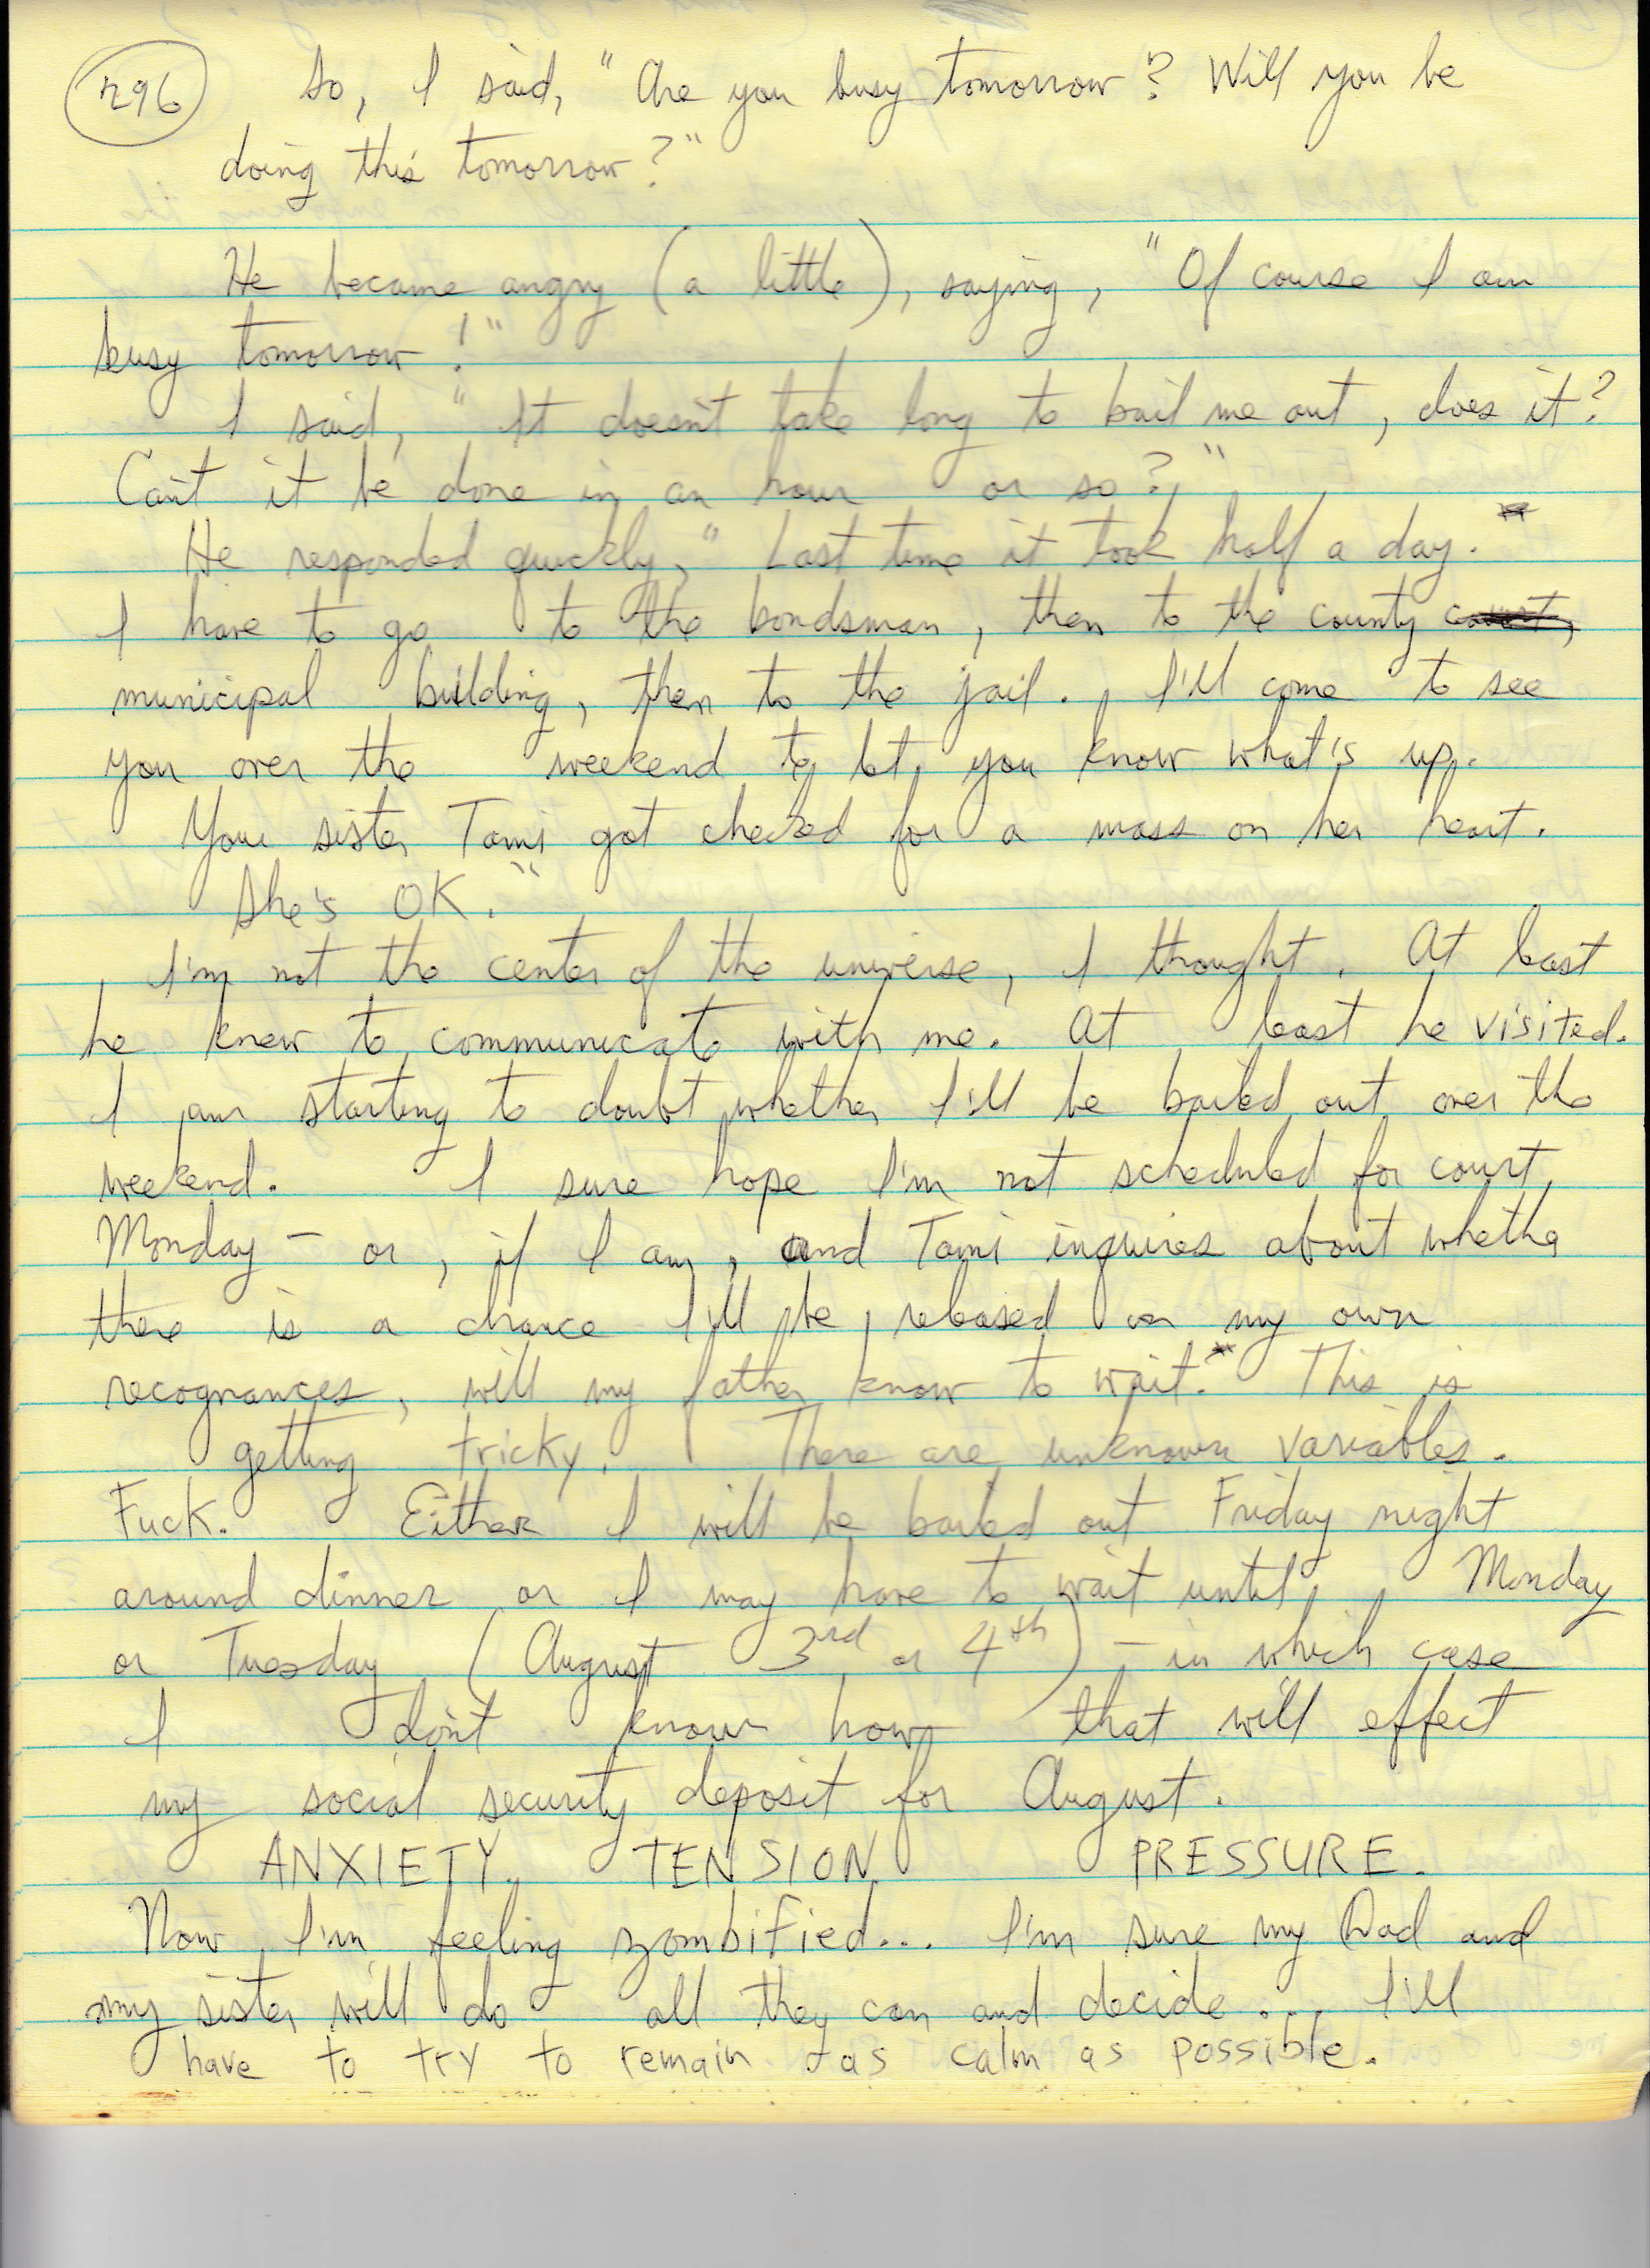 296
So, I said, "Are you busy tomorrow? Will you be
doing this tomorrow?"
He became angry (a little), saying, "Of course I am
busy tomorrow!"
I said, "It doesn't take long to bail me out, does it?
Can't it be done in an hour or so?"
He responded quickly, "Last time it took half a day.
I have to go to the bondsman, then to the county court,
municipal building, then to the jail. I'll come to see
you over the weekend to let you know what's up.
Your sister Tami got checked for a mass on her heart.
She's OK."
I'm not the center of the universe, I thought. At least
he knew to communicate with me. At least he visited.
I am starting to doubt whether I'll be bailed out over the
weekend. I sure hope I'm not scheduled for court
Monday – or, if I am, and Tami inquires about whether
there is a chance I'll be released on my own
recognances, will my father know to wait. This is
getting tricky. There are unknown variables.
Fuck. Either I will be bailed out Friday night
around dinner or I may have to wait until Monday
or Tuesday (August 3rd or 4th) – in which case
I don't know how that will effect
my social security deposit for August.
ANXIETY. TENSION. PRESSURE.
Now I'm feeling zombified... I'm sure my Dad and
my sister will do all they can and decide.... I'll
have to try to remain as calm as possible.